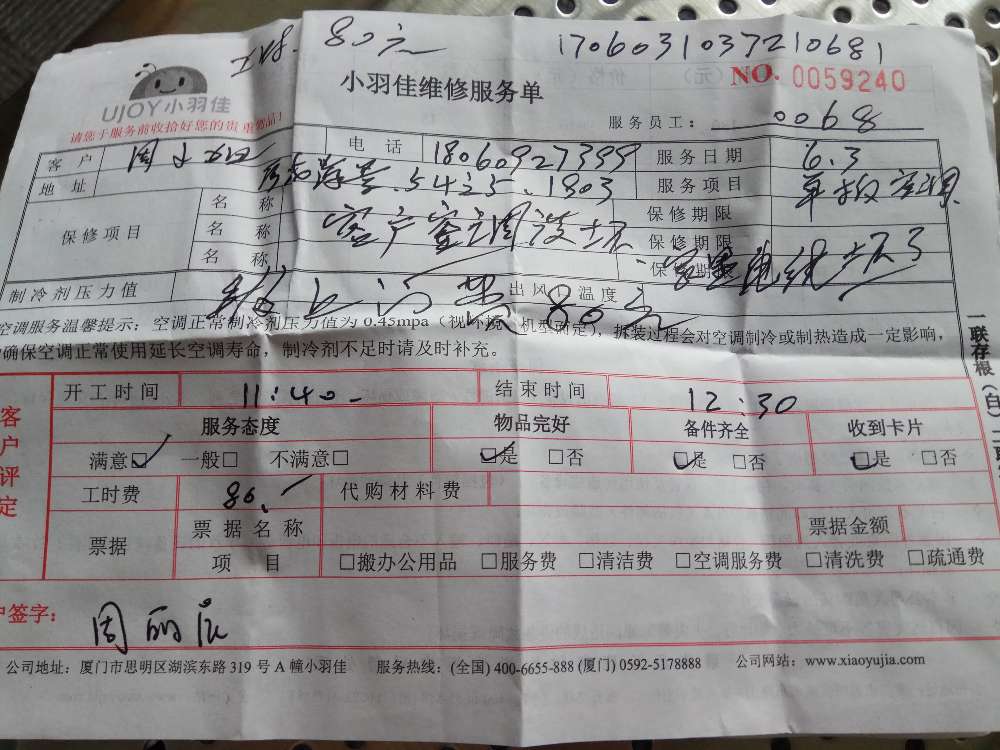 80元
1706031037210681
UJOY小羽佳
请您于服务前收拾好您的贵重物品!
小羽佳维修服务单
NO. 0059240
服务员工: 0068
客户 周 电话 18060927399 服务日期 6.3
地址 1803 服务项目 空调
保修项目 名称 保修期限
名称 客户 空调 保修期限
名称 保修期 坏了
制冷剂压力值 出风口温度 80元
空调服务温馨提示:空调正常制冷剂压力值为0.45mpa(视环境、机型而定),拆装过程会对空调制冷或制热造成一定影响,
确保空调正常使用延长空调寿命,制冷剂不足时请及时补充。
一联存根(白)
客户评定
开工时间 11:40 结束时间 12:30
服务态度 物品完好 备件齐全 收到卡片
满意☑ 一般□ 不满意□ ☑是 □否 ☑是 □否 ☑是 □否
工时费 80. 代购材料费
票据 票据名称 票据金额
项目 □搬办公用品 □服务费 □清洁费 □空调服务费 □清洗费 □疏通费
户签字: 周丽
公司地址:厦门市思明区湖滨东路319号A幢小羽佳 服务热线:(全国)400-6655-888(厦门)0592-5178888 公司网站:www.xiaoyujia.com